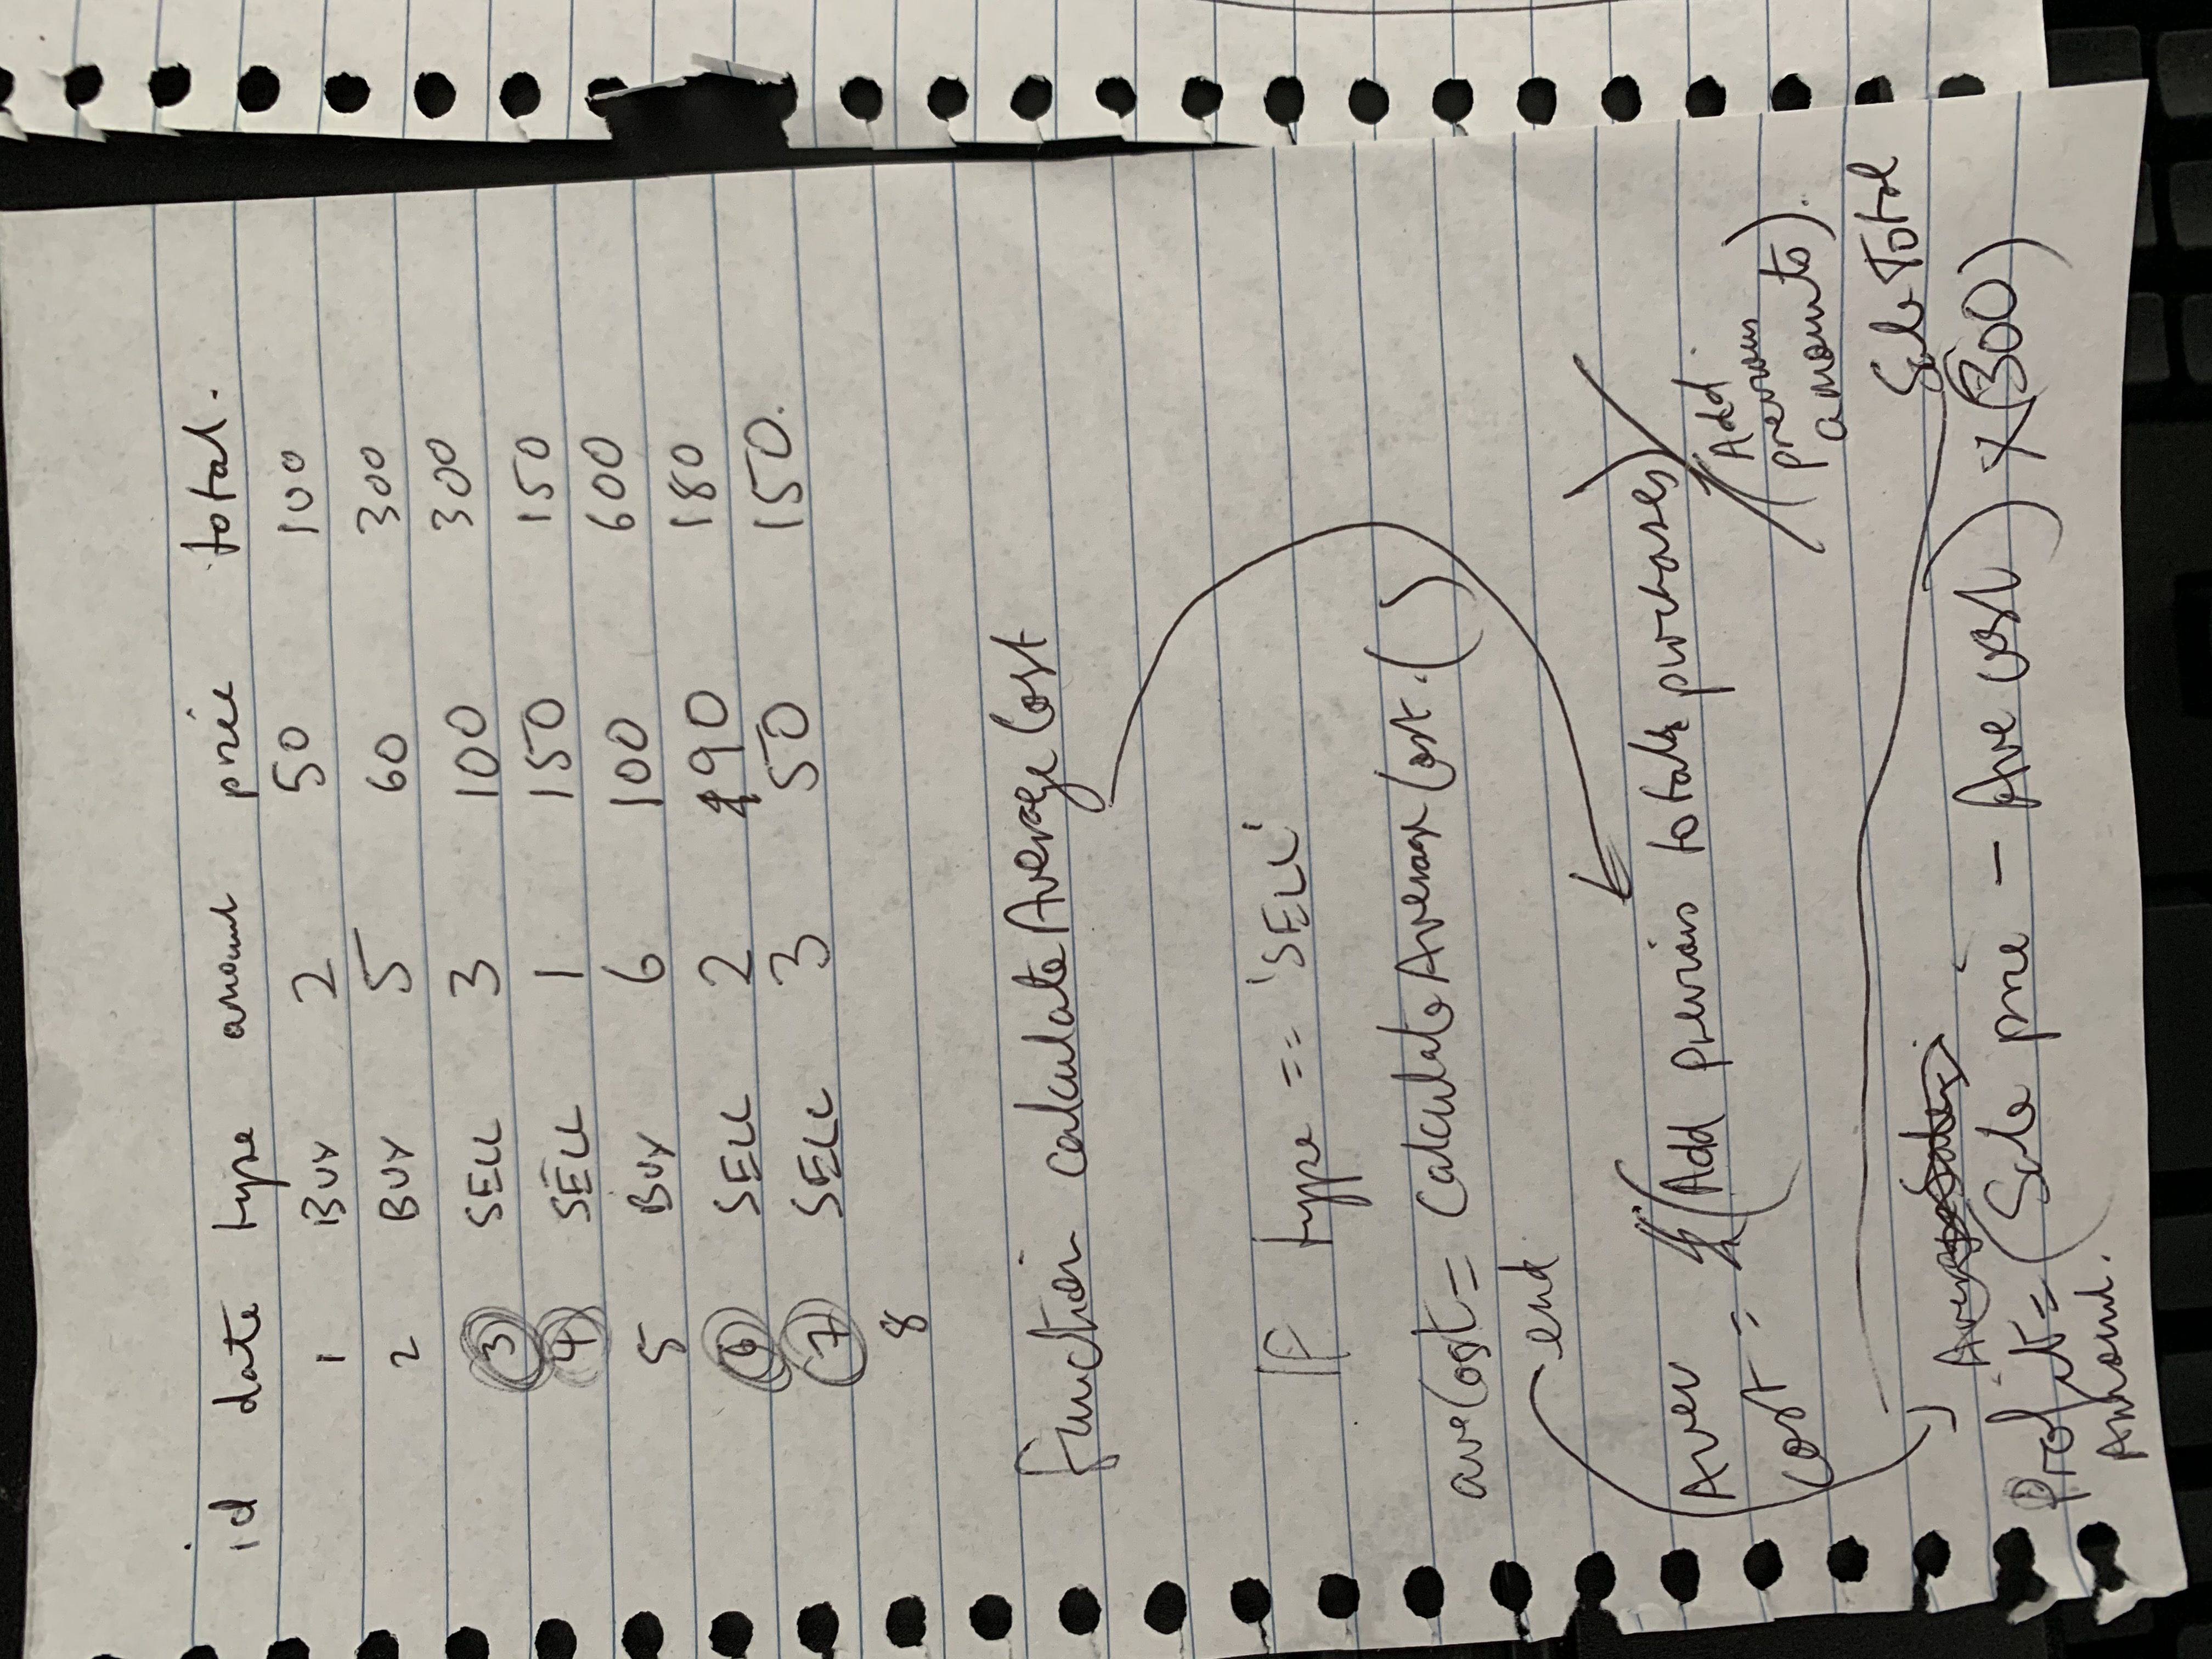 id date type amount price total.
1 BUY 2 50 100
2 BUY 5 60 300
3 SELL 3 100 300
4 SELL 1 150 150
5 BUY 6 100 600
6 SELL 2 90 180
7 SELL 3 50 150.
8
function calculateAverageCost
IF type == 'SELL'
aveCost = calculateAverageCost.()
end
Aver cost = (Add previous totals purchases) / (Add previous amounts).
Sale Total
Average Sale
Profit = (Sale price - Ave cost) x (300)
Amount.